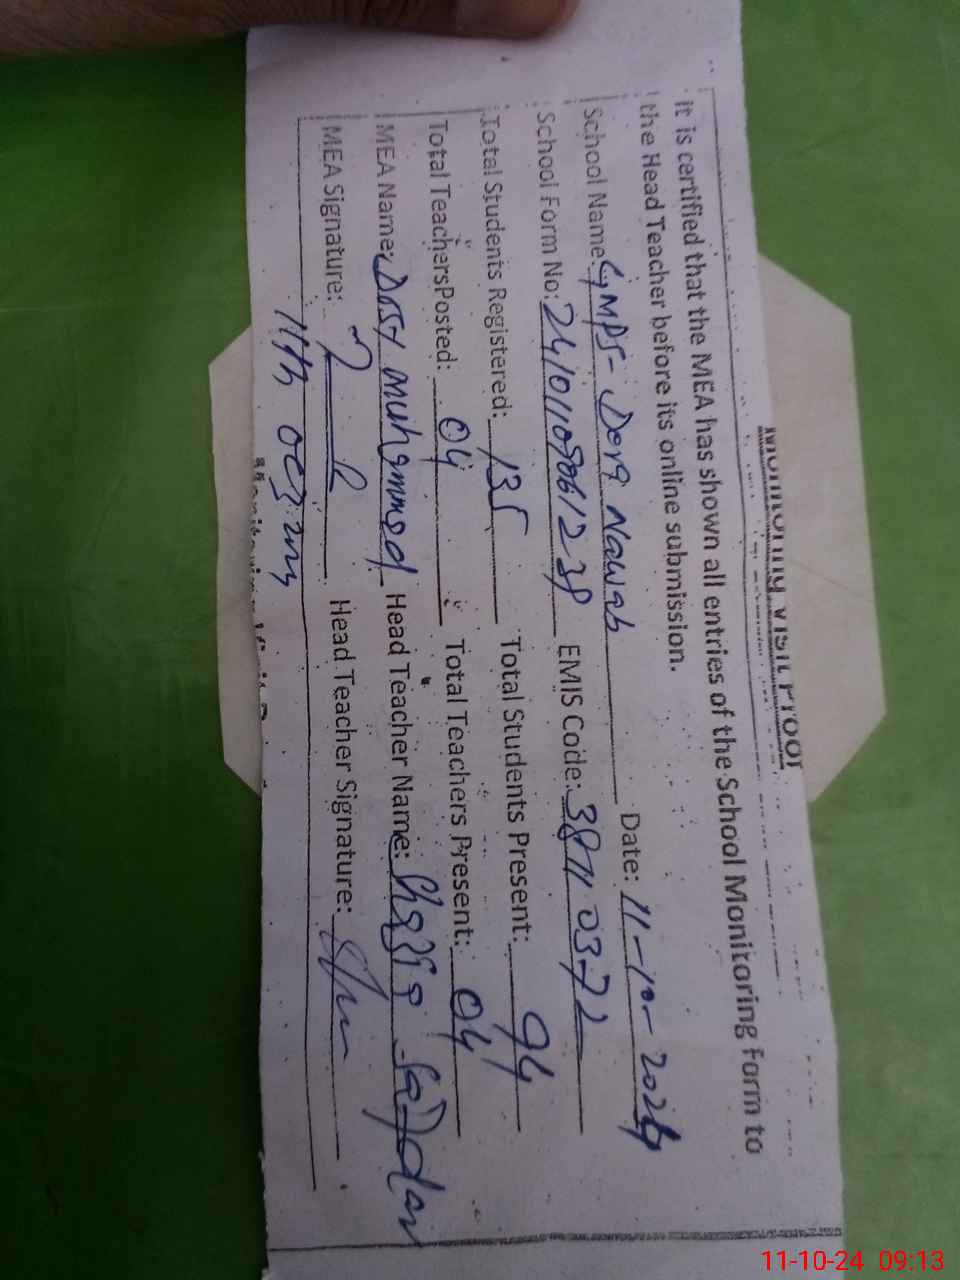 Monitoring Visit Proof
it is certified that the MEA has shown all entries of the School Monitoring Form to
the Head Teacher before its online submission.
School Name: GMPS- Dera Nawab Date: 11-10-2024
School Form No: EMIS Code:
Total Students Registered: 135 Total Students Present: 94
Total TeachersPosted: 04 Total Teachers Present: 04
MEA Name: Dost Muhammad Head Teacher Name:
MEA Signature: Head Teacher Signature:
11th Oct
11-10-24 09:13